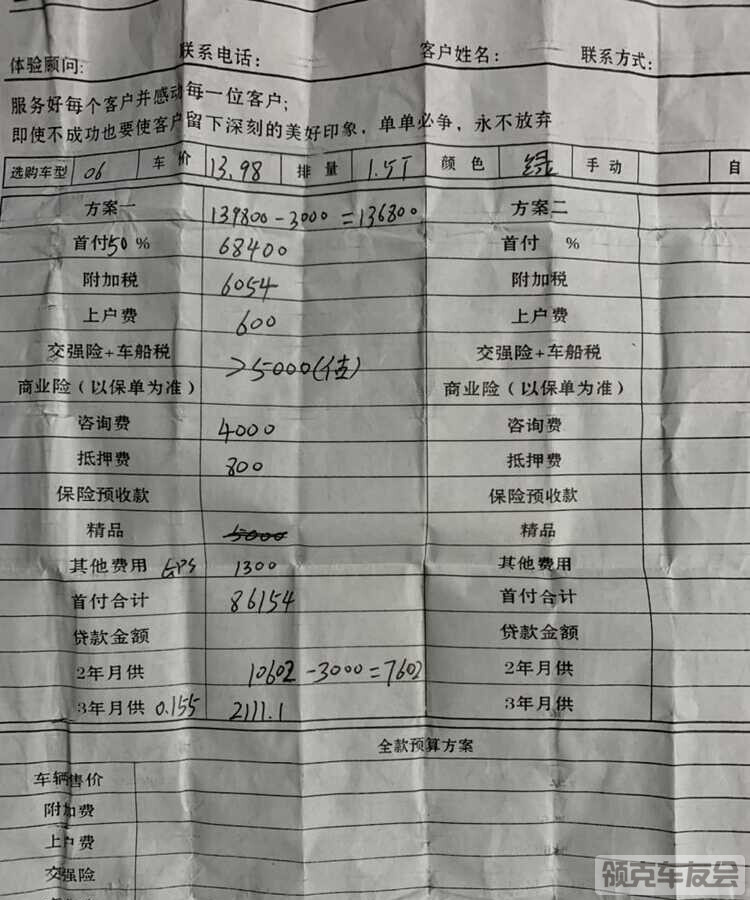 体验顾问: 联系电话: 客户姓名: 联系方式:
服务好每个客户并感动每一位客户;
即使不成功也要使客户留下深刻的美好印象，单单必争，永不放弃
选购车型 06 车价 13.98 排量 1.5T 颜色 绿 手动 自
方案一 139800-3000=136800 方案二
首付50% 68400 首付 %
附加税 6054 附加税
上户费 600 上户费
交强险+车船税 >5000(估) 交强险+车船税
商业险（以保单为准） 商业险（以保单为准）
咨询费 4000 咨询费
抵押费 800 抵押费
保险预收款 保险预收款
精品 5000 精品
其他费用 GPS 1300 其他费用
首付合计 86154 首付合计
贷款金额 贷款金额
2年月供 10602-3000=7602 2年月供
3年月供 0.155 2111.1 3年月供
全款预算方案
车辆售价
附加费
上户费
交强险
领克车友会